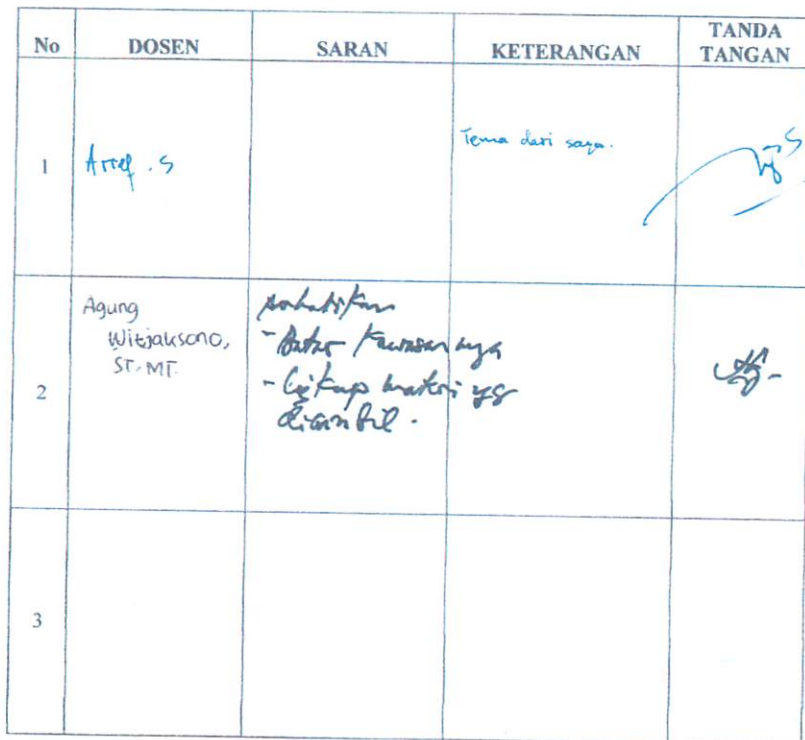 No DOSEN SARAN KETERANGAN TANDA TANGAN
1 Arief . S Tema dari saya.
2 Agung Witjaksono, ST. MT.
perhatikan
- Batas Kawasannya
- Lingkup materi yg
diambil.
3